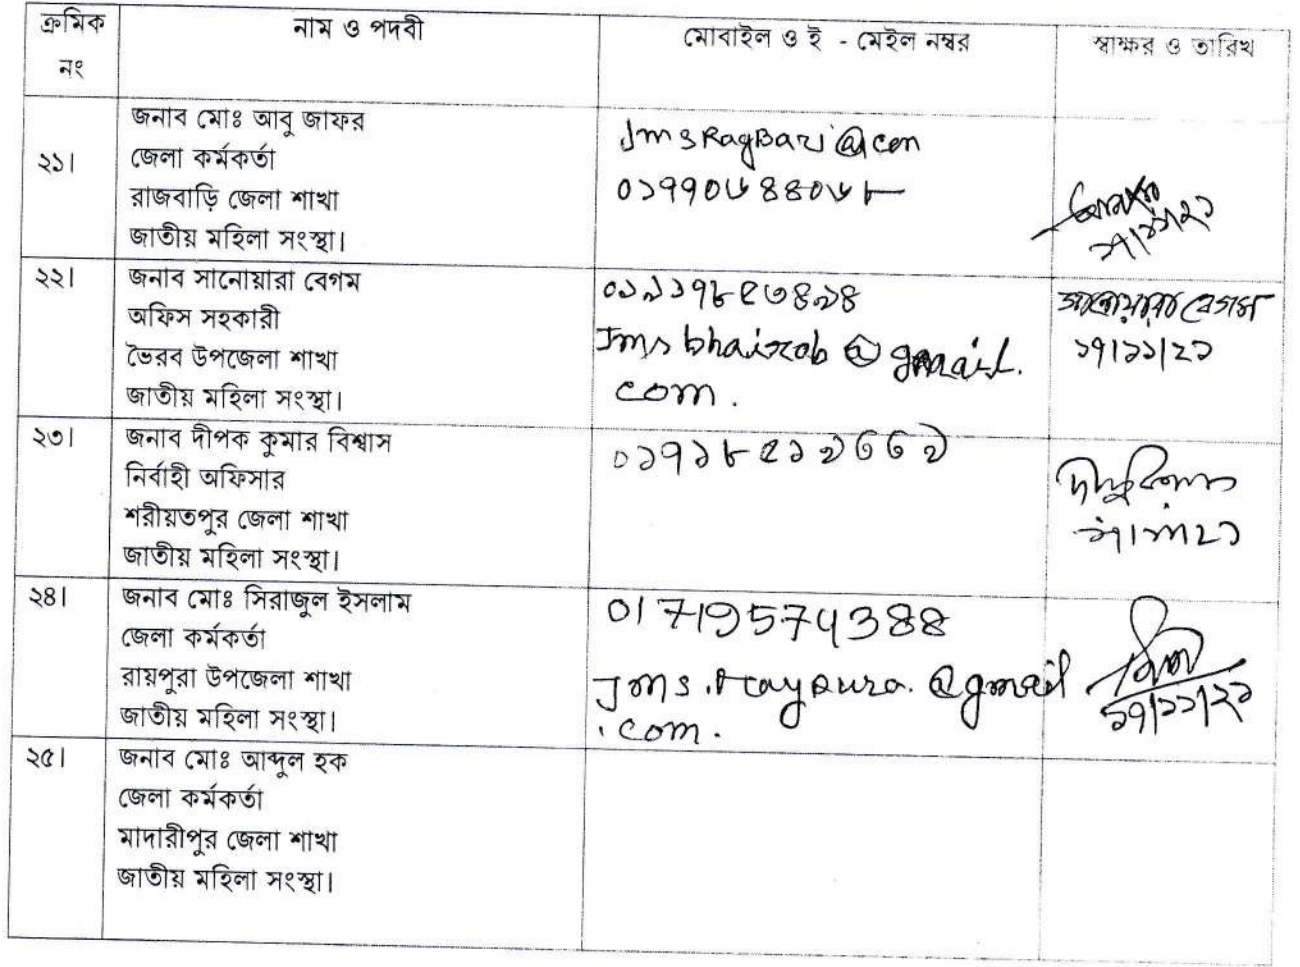 ক্রমিক নং
নাম ও পদবী
মোবাইল ও ই - মেইল নম্বর
স্বাক্ষর ও তারিখ
২১।
জনাব মোঃ আবু জাফর
জেলা কর্মকর্তা
রাজবাড়ি জেলা শাখা
জাতীয় মহিলা সংস্থা।
২২।
জনাব সানোয়ারা বেগম
অফিস সহকারী
ভৈরব উপজেলা শাখা
জাতীয় মহিলা সংস্থা।
Jms bhairab @ gmail.
com.
সানোয়ারা বেগম
১৭।১১।২১
২৩।
জনাব দীপক কুমার বিশ্বাস
নির্বাহী অফিসার
শরীয়তপুর জেলা শাখা
জাতীয় মহিলা সংস্থা।
২৪।
জনাব মোঃ সিরাজুল ইসলাম
জেলা কর্মকর্তা
রায়পুরা উপজেলা শাখা
জাতীয় মহিলা সংস্থা।
01719574388
Jms.raypura.@gmail
.com.
১৭।১১।২১
২৫।
জনাব মোঃ আব্দুল হক
জেলা কর্মকর্তা
মাদারীপুর জেলা শাখা
জাতীয় মহিলা সংস্থা।